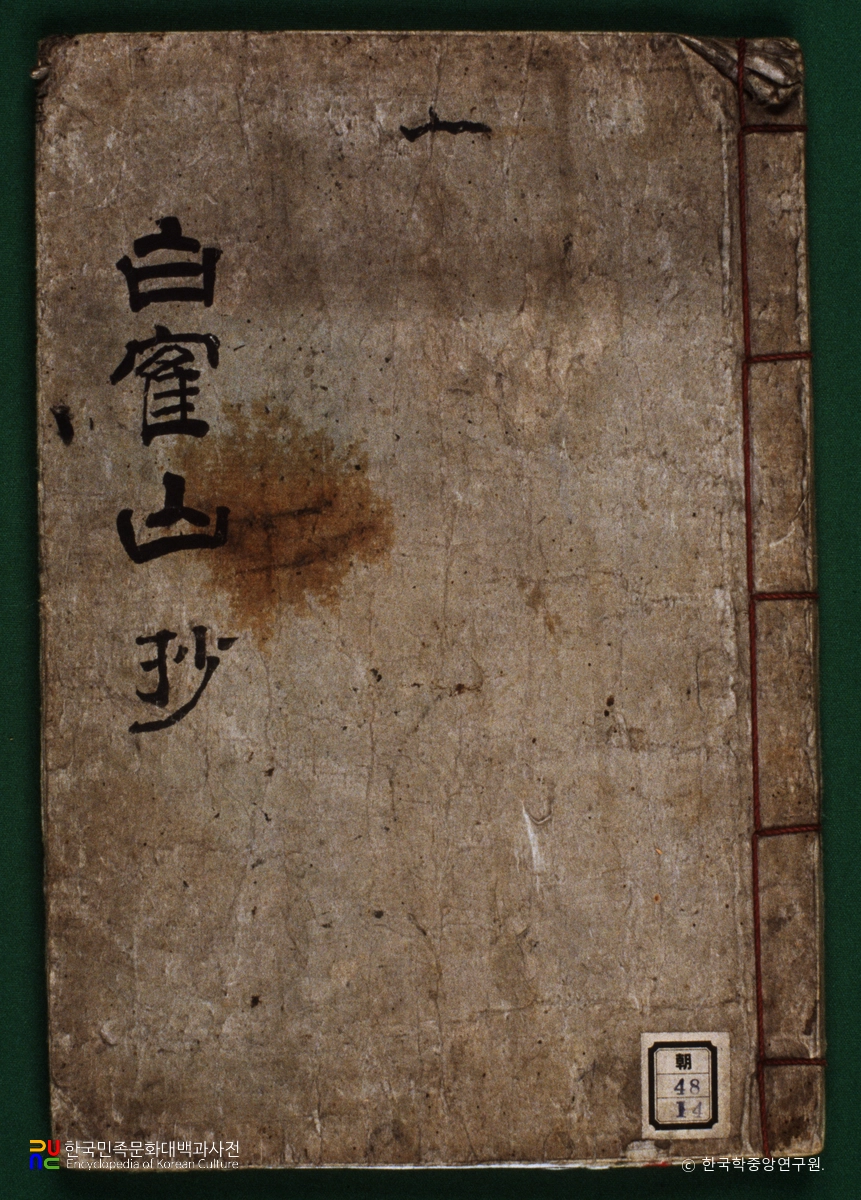 一
白寉山 抄
朝
48
14
한국민족문화대백과사전
Encyclopedia of Korean Culture
© 한국학중앙연구원.